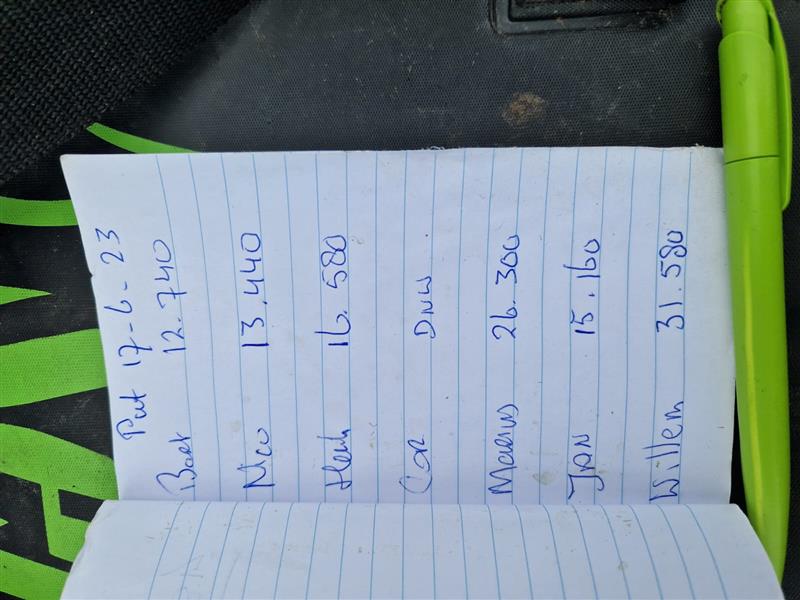 Put 17-6-23
Bart 12.740
Nico 13.440
Henk 16.580
Cor DNW
Marius 26.300
Jan 15.160
Willem 31.580